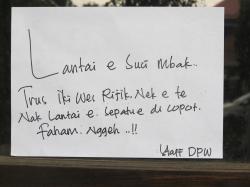 Lantai e Suci Mbak..
Trus iki wes Resik. Nek e te
Nak Lantai e. Sepatu e di copot.
faham. Nggeh ..!!
Staff DPW